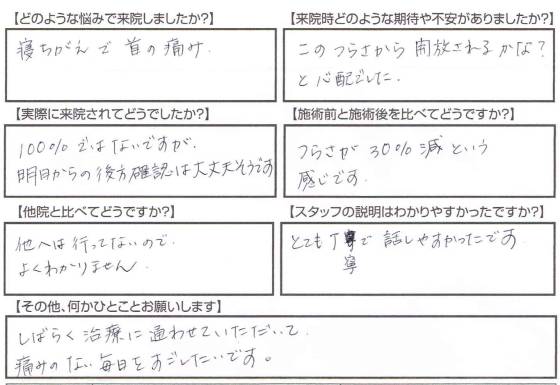 【どのような悩みで来院しましたか?】
寝ちがえで首の痛み.
【来院時どのような期待や不安がありましたか?】
このつらさから開放されるかな?
と心配でした.
【実際に来院されてどうでしたか?】
100%ではないですが、
明日からの後方確認は大丈夫そうです
【施術前と施術後を比べてどうですか?】
つらさが30%減という
感じです.
【他院と比べてどうですか?】
他へは行ってないので、
よくわかりません.
【スタッフの説明はわかりやすかったですか?】
とても丁寧で話しやすかったです
寧
【その他、何かひとことお願いします】
しばらく治療に通わせていただいて、
痛みのない毎日をすごしたいです。